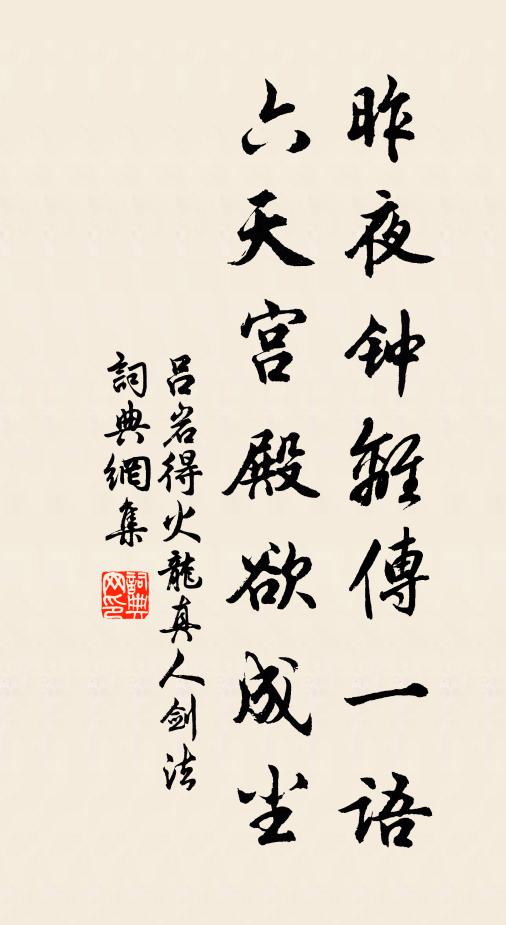 昨夜钟離傳一語
六天宫殿欲成尘
吕岩得火龍真人劍法
詞典網集
詞典
网印